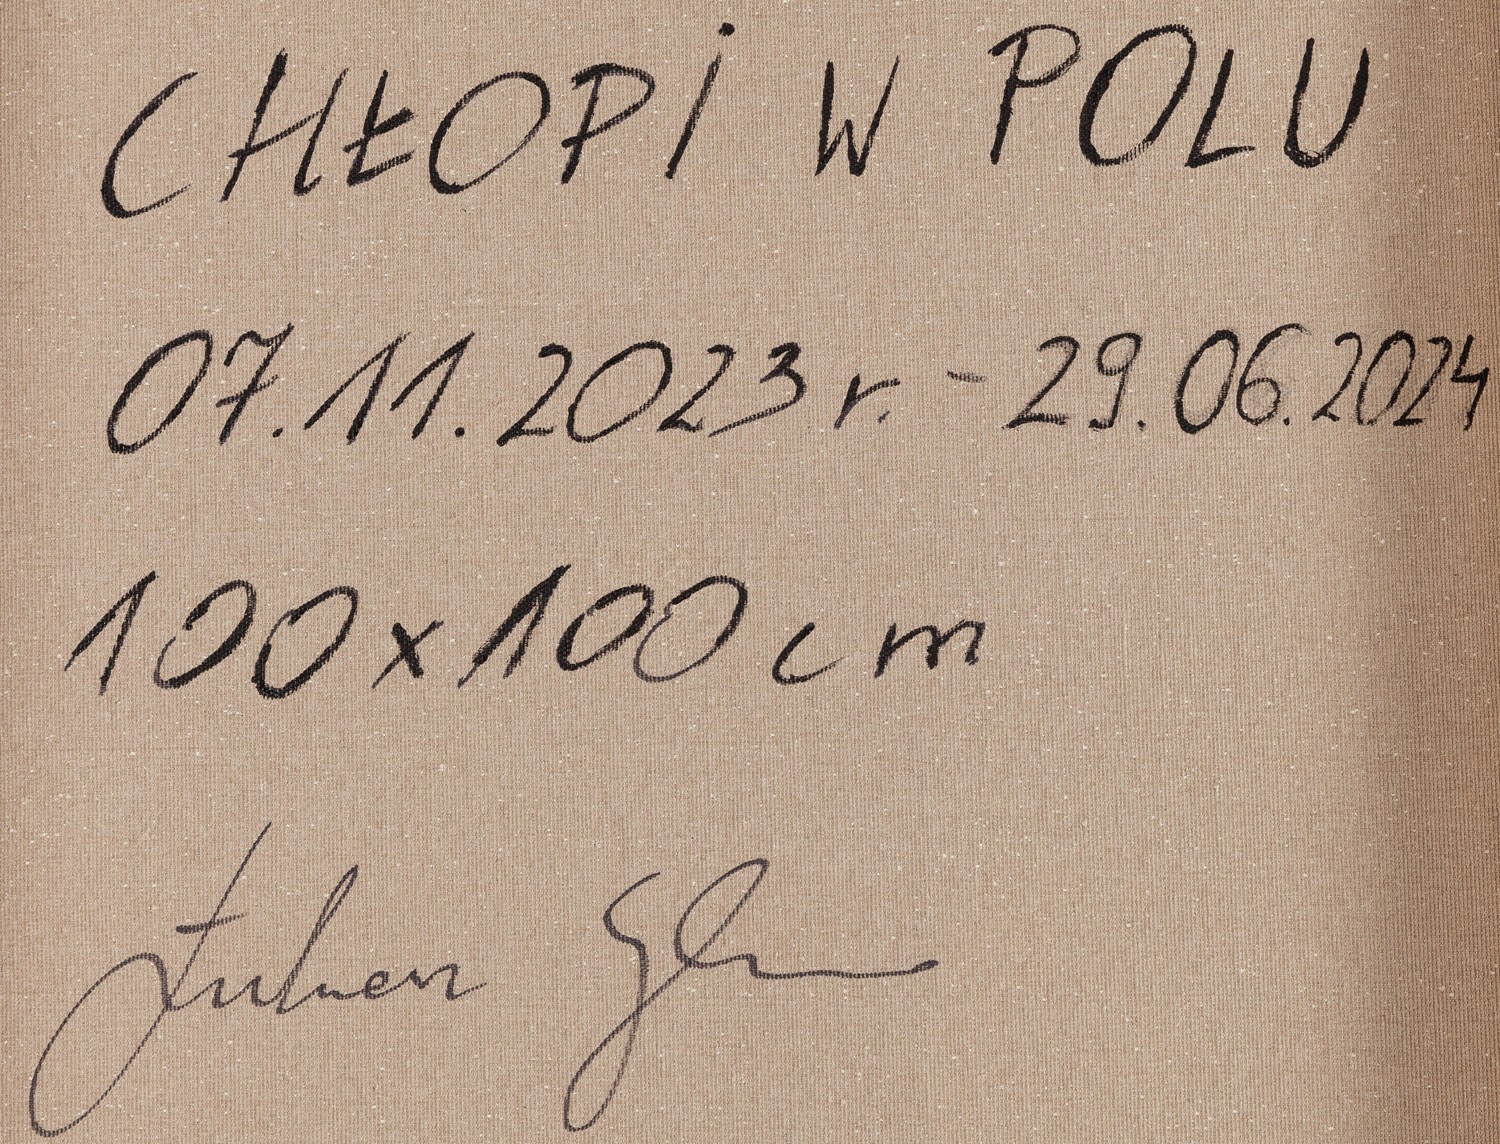 CHŁOPI W POLU
07.11.2023 r. - 29.06.2024
100x100 cm